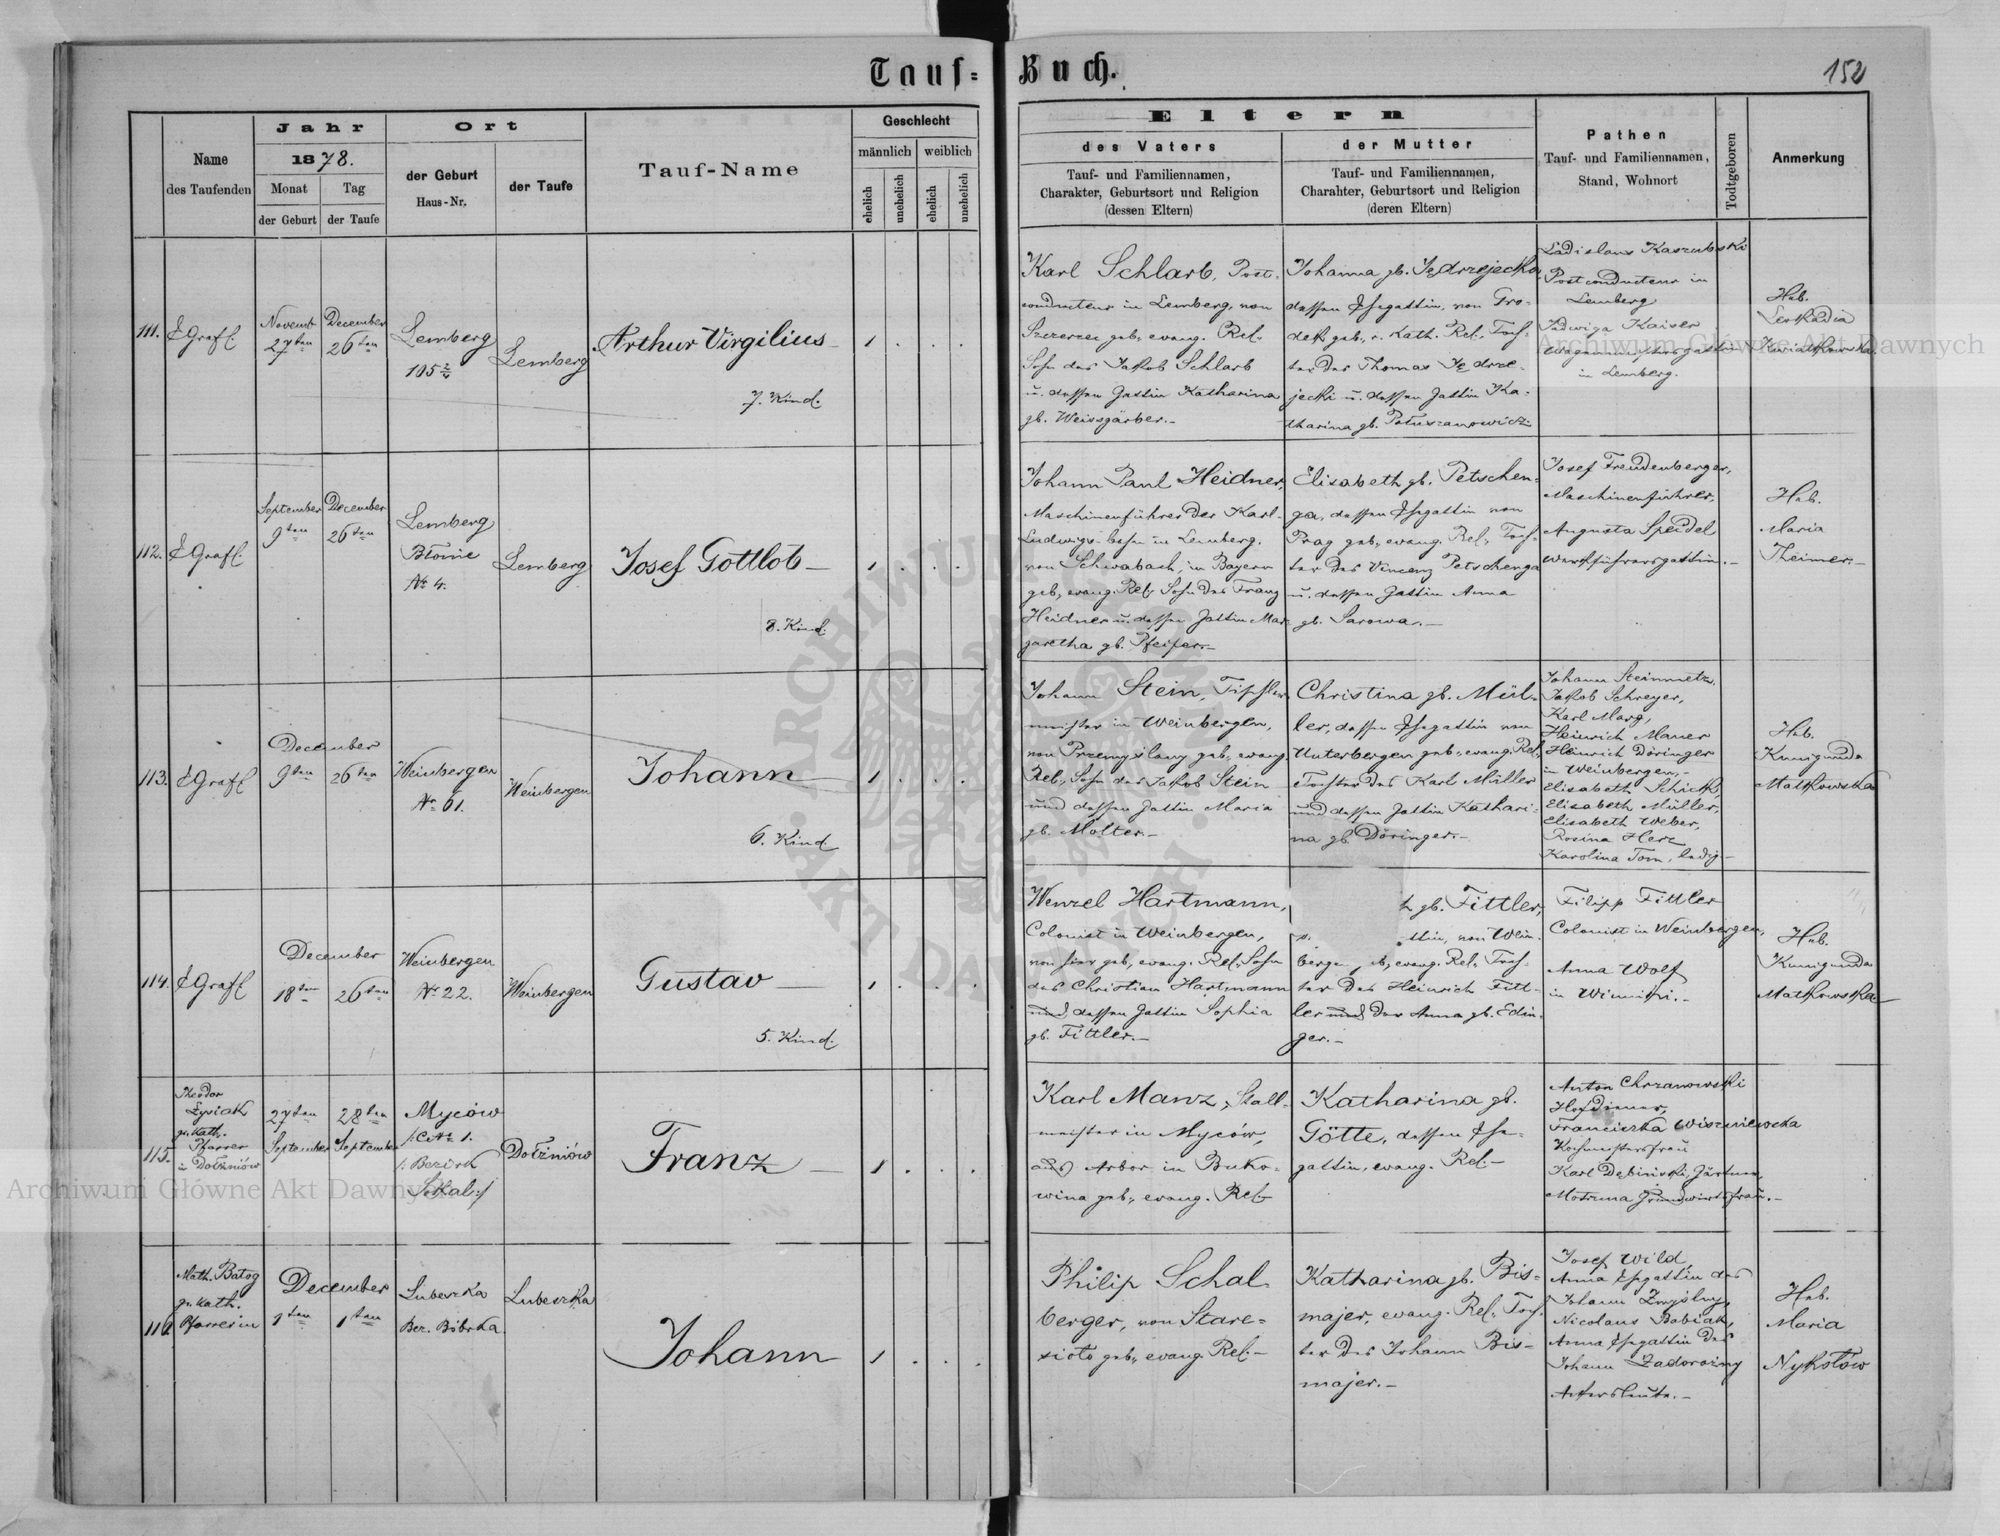 Tauf-Buch.
152
Name
des Taufenden
Jahr
1878.
Monat
der Geburt
Tag
der Taufe
Ort
der Geburt
Haus-Nr.
der Taufe
Tauf-Name
Geschlecht
männlich
weiblich
ehelich
unehelich
ehelich
unehelich
Eltern
des Vaters
Tauf- und Familiennamen,
Charakter, Geburtsort und Religion
(dessen Eltern)
der Mutter
Tauf- und Familiennamen,
Charahter, Geburtsort und Religion
(deren Eltern)
Pathen
Tauf- und Familiennamen,
Stand, Wohnort
Todtgeboren
Anmerkung
111.
Novemb.
27ten
December
26ten
Lemberg
105 2/4
Lemberg
Arthur Virgilius
7. Kind.
1 . . .
Karl Schlarb, Post-
conducteur in Lemberg, von
Szczerzec geb., evang. Rel.
Sohn des Jakob Schlarb
u. dessen Gattin Katharina
gb. Weissgärber.-
Johanna gb. Jędrzejecka
dessen Ehegattin, von Gro-
dek geb., r. Kath. Rel. Toch-
ter des Thomas Jędrze-
jecki u. dessen Gattin Ka-
tharina gb.
Ladislaus Kaszubski
Postconducteur in
Lemberg
Jadwiga Kaiser
Wagenmeistersgattin
in Lemberg.
Heb.
Leokadia
Kwiatkowska.
112.
September
9ten
December
26ten
Lemberg
Błonie
Nr 4.
Lemberg
Josef Gottlob
8. Kind.
1 . . .
Johann Paul Heidner,
Maschinenführer der Karl-
Ludwigs-bahn in Lemberg.
von Schwabach, in Bayern
geb., evang. Rel. Sohn des Franz
Heidner u. dessen Gattin Mar-
garetha gb. Pfeifer.-
Elisabeth gb. Petschen-
ga, dessen Ehegattin von
Prag geb., evang. Rel., Toch-
ter des Vincenz Petschenga
u. dessen Gattin Anna
gb. Sarowa.-
Josef Freudenberger,
Maschinenführer,
Augusta Speidel
Werkführersgattin.-
Heb.
Maria
Theimer.-
113.
December
9ten
26ten
Weinbergen
Nr 61.
Weinbergen
Johann
6. Kind
1 . . .
Johann Stein, Tischler
meister in Weinbergen,
von Przemyslany geb., evang.
Rel., Sohn des Jakob Stein
und dessen Gattin Maria
gb. Molter.-
Christina gb. Mül-
ler, dessen Ehegattin von
Unterbergen geb., evang. Rel.,
Tochter des Karl Müller
und dessen Gattin Kathari-
na gb. Döringer.-
Johann Steinmetz,
Jakob Schreyer,
Karl Marg,
Heinrich Maner
Heinrich Döringer
in Weinbergen,-
Elisabeth Schick,
Elisabeth Müller,
Elisabeth Weber,
Rosina Herz
Karolina Tom, ledig-
Heb.
Kunigunda
Malkowska
114.
December
18ten
26ten
Weinbergen
Nr 22.
Weinbergen
Gustav
5. Kind.
1 . . .
Wenzel Hartmann,
Colonist in Weinbergen,
von hier geb., evang. Rel., Sohn
des Christian Hartmann
und dessen Gattin Sophia
gb. Fittler.-
gb. Fittler,
ttin, von Wein-
berge evang. Rel., Toch-
ter des Heinrich Fitt-
ler und der Anna gb. Edin-
ger.-
Filipp Fittler
Colonist in Weinbergen,
Anna Wolf
in Winniki.-
Heb.
Kunigunda
Malkowska
115.
Theodor
Łysiak
gr. Kath.
Pfarrer
in Dołżniów
27ten
September
28ten
September
Myców
/: CNr 1.
/: Bezirk
Sokal :/
Dołżniów
Franz
1 . . .
Karl Manz, Stall-
meister in Myców,
aus Arbor in Buko-
wina geb., evang. Rel.
Katharina gb.
Götte, dessen Ehe-
gattin, evang. Rel.-
Anton Chrzanowski
Hofdiener,
Franciszka Wiszniewska
Kochmeistersfrau
Karl Dębiński, Gärtner,
Motruna Grundwirthsfrau.-
116.
Math. Batog
gr. Kath.
Pfarrer in
December
1ten
1ten
Lubeszka
Bez. Bóbrka.
Lubeszka
Johann
1 . . .
Philip Schal
berger, von Stare-
sioło geb., evang. Rel.-
Katharina gb. Bis-
majer, evang. Rel., Toch-
ter des Johann Bis-
majer.-
Josef Wild,
Anna Ehegattin des
Johann Zmyślny,
Nicolaus Babiak,
Anna Ehegattin des
Johann Zadorożny
Ackersleute.-
Heb.
Maria
Nykołów
Archiwum Główne Akt Dawnych
Archiwum Główne Akt Dawnych
ARCHIWUM GŁÓWNE AKT DAWNYCH